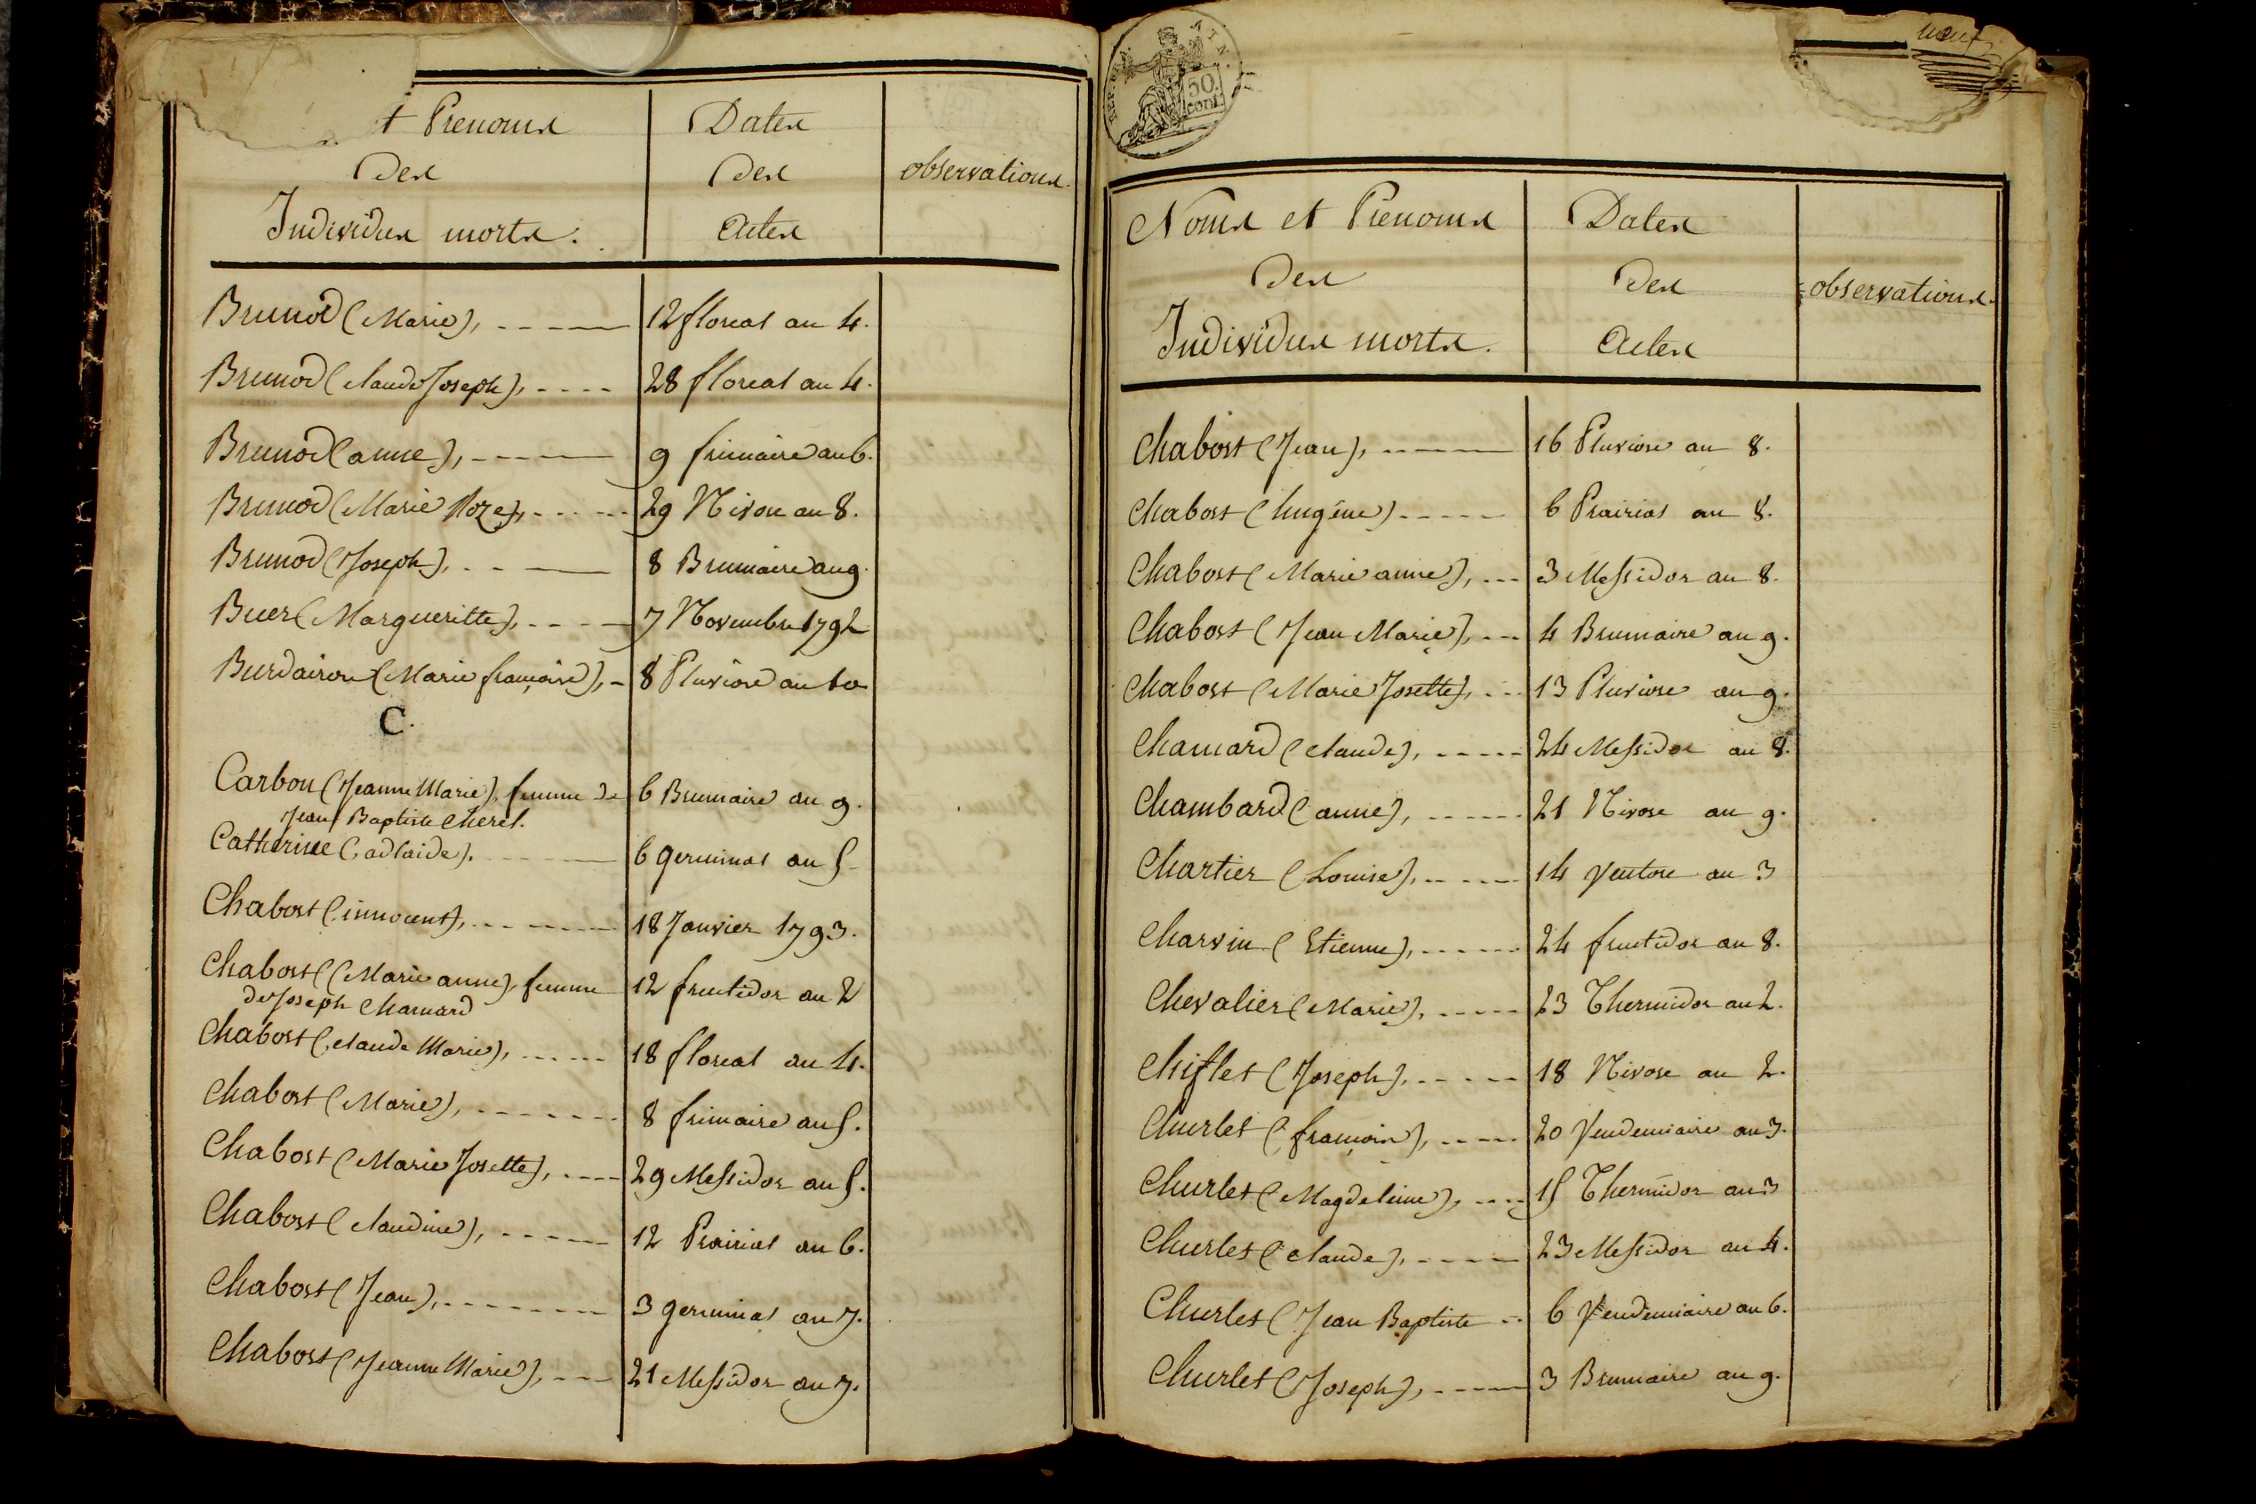 et Prenoms
Des
Individus morts.
Dates
Des
Actes
observations.
Brunod (Marie), 12 floreal an 4.
Brunod (claude Joseph), 28 floreal an 4.
Brunod (anne), 9 frimaire an 6.
Brunod (Marie Roze), 29 Nivose an 8.
Brunod (Joseph), 8 Brumaire an 9.
Buer (Margueritte), 7 Novembre 1792
Burdairon (Marie françoise), 8 Pluviose an 10
C.
Carbon (Jeanne Marie), femme de 6 Brumaire an 9.
Jean Baptiste Cherel.
Catherine (adlaide). 6 germinal an 5
Chabost (innocent), 18 Janvier 1793.
Chabost (Marie anne), femme 12 fructidor an 2
de Joseph Chamard
Chabost (claude Marie), 18 floreal an 4.
Chabost (Marie), 8 frimaire an 5.
Chabost (Marie Josette), 29 Messidor an 5.
Chabost (claudine), 12 Prairial an 6.
Chabost (Jean), 3 germinal an 7.
Chabost (Jeanne Marie), 21 Messidor an 7.
50.
cent.
neuf
Noms et Prenoms
Des
Individus morts.
Dates
Des
Actes
observations.
Chabost (Jean), 16 Pluviose an 8.
Chabost (hugéne) 6 Prairial an 8.
Chabost (Marie anne), 3 Messidor an 8.
Chabost (Jean Marie), 4 Brumaire an 9.
Chabost (Marie Josette), 13 Pluviose an 9.
Chamard (claude), 24 Messidor an 8.
Chambard (anne), 21 Nivose an 9.
Chartier (Louise), 14 Ventose an 3
Charvin (Etienne), 24 fructidor an 8.
Chevalier (Marie), 23 Thermidor an 2.
Chiflet (Joseph), 18 Nivose an 2.
Churlet (françois), 20 Vendemiaire an 3.
Churlet (Magdeleine), 15 Thermidor an 3
Churlet (claude), 23 Messidor an 4.
Churlet (Jean Baptiste 6 Vendemiaire an 6.
Churlet (Joseph), 3 Brumaire an 9.